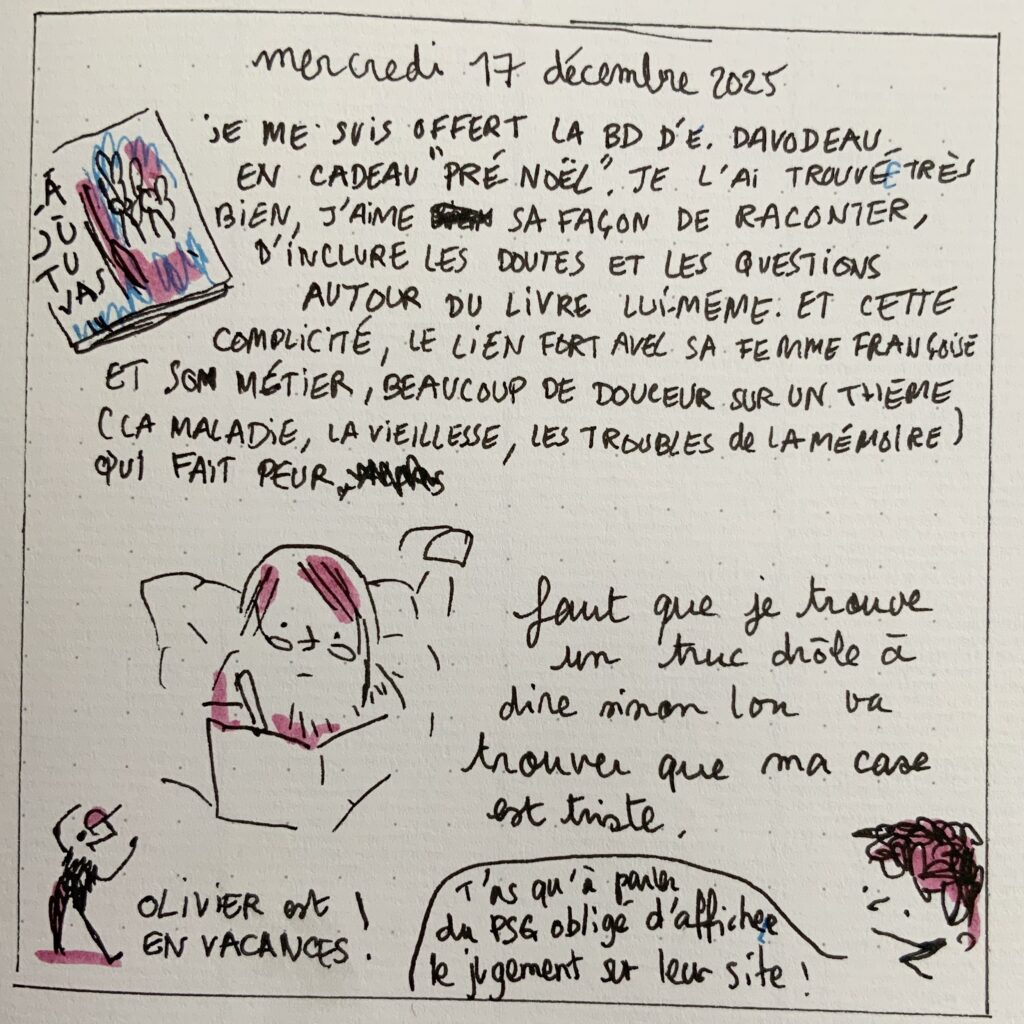 mercredi 17 décembre 2025
JE ME SUIS OFFERT LA BD D'E. DAVODEAU
EN CADEAU "PRÉ NOËL". JE L'AI TROUVÉE TRÈS
BIEN, J'AIME SA FAÇON DE RACONTER,
D'INCLURE LES DOUTES ET LES QUESTIONS
AUTOUR DU LIVRE LUI-MÊME. ET CETTE
COMPLICITÉ, LE LIEN FORT AVEC SA FEMME FRANÇOISE
ET SON MÉTIER, BEAUCOUP DE DOUCEUR SUR UN THÈME
(LA MALADIE, LA VIEILLESSE, LES TROUBLES de LA MÉMOIRE)
QUI FAIT PEUR,
LÀ
OÙ
TU
VAS
faut que je trouve
un truc drôle à
dire sinon lou va
trouver que ma case
est triste.
OLIVIER est
EN VACANCES !
T'as qu'à parler
du PSG obligé d'afficher
le jugement sur leur site !